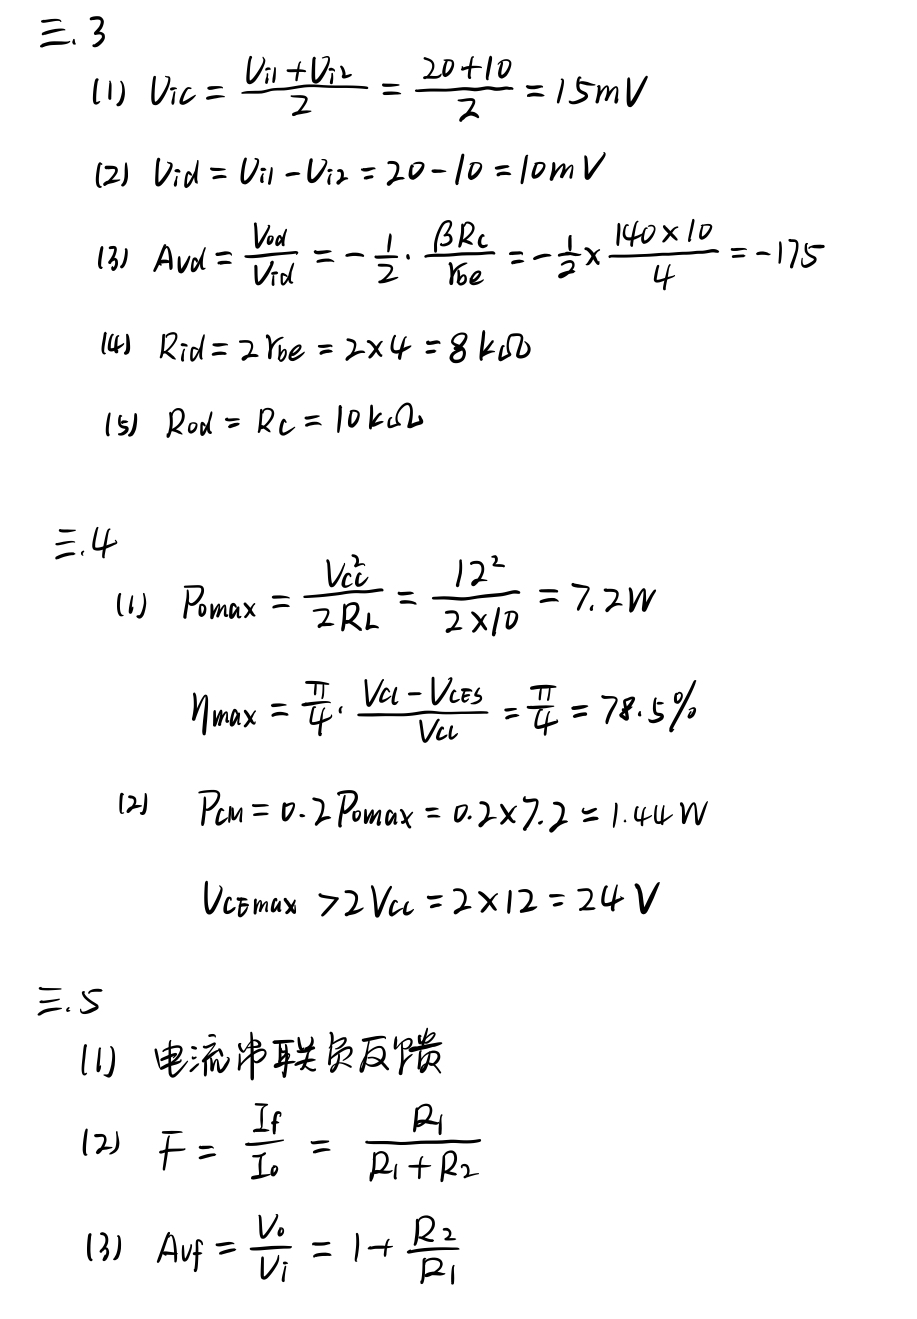 三.3
(1) Vic = (Vi1+Vi2)/2 = (20+10)/2 = 15mV
(2) Vid = Vi1 - Vi2 = 20-10 = 10mV
(3) Avd = Vod/Vid = -1/2 · βRc/rbe = -1/2 × (140×10)/4 = -175
(4) Rid = 2rbe = 2×4 = 8kΩ
(5) Rod = Rc = 10kΩ
三.4
(1) Pomax = Vcc²/(2RL) = 12²/(2×10) = 7.2W
ηmax = π/4 · (Vcc-VCES)/Vcc = π/4 = 78.5%
(2) PCM = 0.2Pomax = 0.2×7.2 = 1.44W
VCEmax >2Vcc = 2×12 = 24V
三.5
(1) 电流串联负反馈
(2) F = If/Io = R1/(R1+R2)
(3) Avf = Vo/Vi = 1+R2/R1